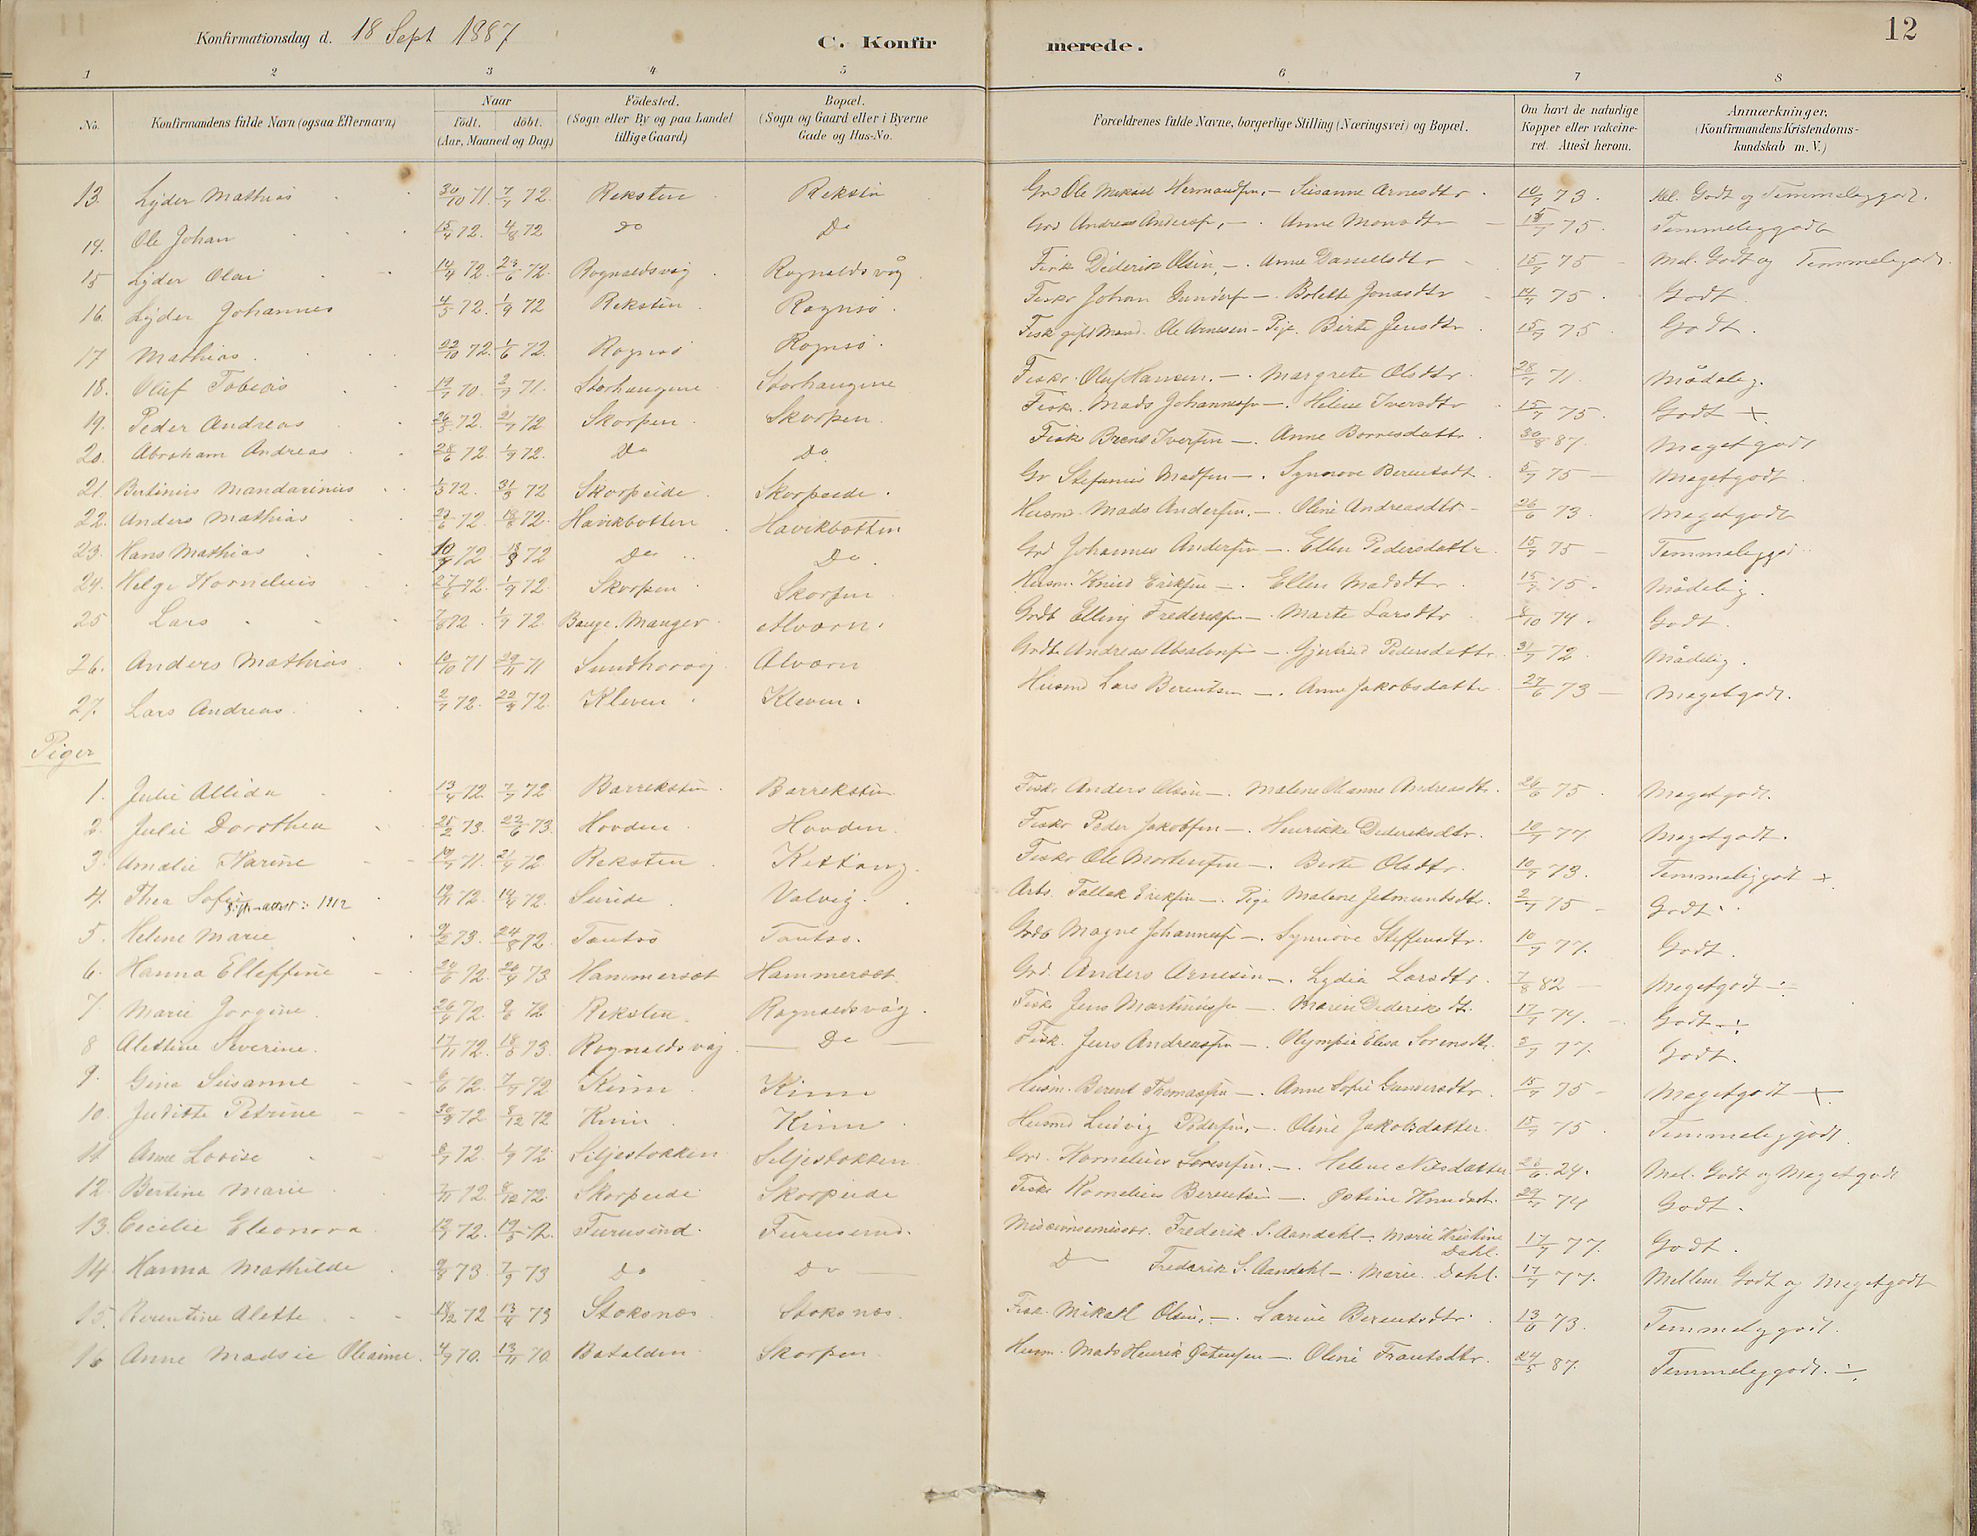 Konfirmationsdag d. 18 Sept 1887
C. Konfirmerede.
12
1 2 3 4 5 6 7 8
No. Konfirmandens fulde Navn (ogsaa Efternavn) Naar født. døbt. (Aar, Maaned og Dag) Födested. (Sogn eller By og paa Landet tillige Gaard) Bopæl. (Sogn og Gaard eller i Byerne Gade og Hus-No. Forældrenes fulde Navne, borgerlige Stilling (Næringsvei) og Bopæl. Om havt de naturlige Kopper eller vakcineret. Attest herom. Anmærkninger. (Konfirmandens Kristendomskundskab m. V.)
13 Lyder Mathias 30/10 71 7/7 72 Reksten Reksten Grd Ole Mikael Hermandsen - Susanne Arnesdtr 10/7 73. Mel. Godt og Temmeleggodt.
14. Ole Johan 15/4 72. 4/8 72 Do Do Grd Andreas Andersen - Anne Monsdtr 15/7 75. Temmeleggodt
15 Lyder Olai 14/4 72. 23/6 72. Rognaldsvåg Rognaldsvåg Fisk Diderik Olsen - Anne Danielsdtr 15/7 75 Mel. Godt og Temmeleggodt.
16. Lyder Johannes 4/5 72. 1/9 72 Reksten Rognsö. Fiskr Johan Gunders - Bolette Jonasdtr 14/7 75. Godt
17 Mathias. 22/10 72. 1/6 72. Rognsö Rognsö. Fisk gift Mand. Ole Arnesen - Pige. Birte Jensdtr 15/7 75. Godt.
18. Oluf Tobias 19/7 70. 2/7 71. Storhaugene Storhaugene Fiskr. Oluf Hansen. - Margrete Olsdtr. 28/7 71. Mådelig.
19. Peder Andreas 26/3 72. 21/7 72 Skorpen Skorpen. Fiskr. Mads Johannesen - Helene Iversdtr 15/7 75. Godt +
20. Abraham Andreas 28/6 72. 1/9 72. Do Do Fiskr Brent Iversen - Anne Bornesdattr. 30/8 87. Megetgodt
21. Bertinius Mandarinius 1/3 72. 31/3 72 Skorpeide. Skorpeide. Gr Stefanus Madsen - Synnøve Berentsdt. 5/7 75 - Megetgodt.
22. Anders Mathias 27/6 72. 18/8 72. Havikbotten Havikbotten Husm. Mads Andersen. - Oline Andreasdtr - 26/6 73. Megetgodt
23. Hans Mathias 10/7 72 18/8 72 Do Do. Grd Johannes Andersen - Ellen Pedersdattr. 15/7 75 - Temmeleggodt
24. Helge Kornelius 27/6 72. 1/9 72. Skorpen Skorpen Husm. Knud Eriksen - Ellen Madsdtr. 15/7 75. Mådelig.
25 Lars 7/6 72. 1/7 72. Bauge. Manger. Alværn. Grdb Elling Frederiksen - Marte Larsdtr 8/10 74. Godt.
26. Anders Mathias 10/10 71 29/11 71 Sundhorvåg. Alværn Grdb. Andreas Absalonsen - Gjertrud Pedersdattr. 31/7 72. Mådelig.
27. Lars Andreas. 2/7 72. 22/9 72. Kleven Kleven. Husmd Lars Berentsen -. Anne Jakobsdattr. 27/6 73 - Megetgodt.
Piger
1. Julie Allida 13/4 72. 7/7 72 Barrekstin. Barrekstin Fiskr Anders Olsen -. Malene Olianne Andreasdtr. 26/6 75. Megetgodt.
2. Julie Dorothea 25/2 73. 22/6 73. Hovden. Hovden. Fiskr Peder Jakobsen -. Henrikke Dideriksdtr. 10/7 77 Megetgodt.
3. Amalie Karine 19/7 71. 21/4 72 Reksten. Kittang. Fiskr Ole Mortensen -. Birte Olsdtr. 10/7 73. Temmeleggodt +.
4. Thea Sofie Gift-attest: 1912 19/11 72. 14/4 72. Sunde. Valvåg. Arb. Tallak Eriksen -. Pige Malene Jetmundsdtr. 2/7 75 - Godt.
5. Helene Marie 9/2 73. 24/8 72. Tantsö Tantsö. Grdb Magne Johannesen -. Synnöve Steffensdtr. 10/7 77. Godt.
6. Hanna Elleffine 24/6 72. 20/4 73 Hammerset Hammerset. Grd. Anders Arnesen -. Lydia Larsdtr. 7/8 82 - Megetgodt -:-
7. Marie Jorgine. 26/4 72. 9/6 72 Reksten. Rognaldsvåg. Fiskr Jens Martinusen -. Maren Dideriksdt. 17/7 74. - Godt -:-
8 Alettine Severine. 17/11 72. 18/5 73. Rognaldsvåg - Do - Fisk. Jens Andreasen -. Olympia Elisa Sorensdtr. 3/7 77. Godt.
9. Gina Susanne 6/6 72. 7/7 72 Kinn. Kinn Husm. Berent Thomassen -. Anne Sofie Gunnersdtr. 15/7 75 - Megetgodt +.
10. Juditte Petrine 30/9 72 8/12 72 Kinn. Kinn. Husmd Ludvig Pedersen. - Oline Jakobsdatter. 15/7 75. Temmeleggodt.
11 Anne Lovise 8/7 72. 1/9 72. Seljestokken Seljestokken. Grd. Kornelius Sorensen. -. Helene Nilsdatter 26/6 24. Mel. Godt og Megetgodt
12. Bertine Marie 7/11 72. 8/12 72. Skorpeide Skorpeide Fiskr Kornelius Berentsen -. Østine Knudsdt. 29/7 74 Godt.
13. Cecilie Eleonora. 12/3 72. 19/5 72. Furusund. Furusund. Missionsemissr. Frederik S. Aandahl - Marie Kristine Dahl. 17/7 77. Godt.
14. Hanna Mathilde 9/8 73. 7/9 73 Do Do - Do Frederik S. Aandahl -. Marie. Dahl. 17/7 77. Mellem Godt og Megetgodt
15. Berentine Alette 18/12 72 13/4 73 Stoksnæs. Stoksnæs. Fisk. Mikael Olsen. -. Larine Berentsdtr. 13/6 73. Temmeleggodt.
16 Anne Madsie Oleaine. 4/9 70. 13/11 70. Batalden. Skorpen. Husm. Mads Henrik Østensen -. Oline Frantsdtr. 24/5 87. Temmeleggodt. -:-